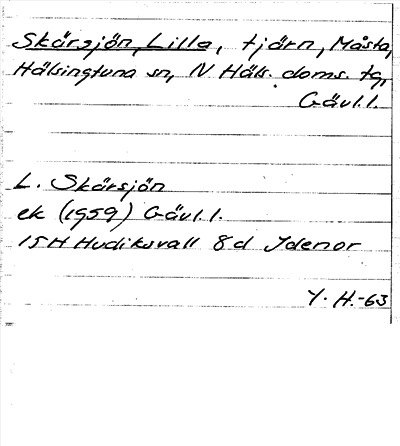 Skärsjön, Lilla, tjärn, Måsta,
Hälsingtuna sn, N Häls. doms. tg,
Gävl.l.
L. Skärsjön
ek (1959) Gävl.l.
15H Hudiksvall 8d Idenor
Y. H.-63